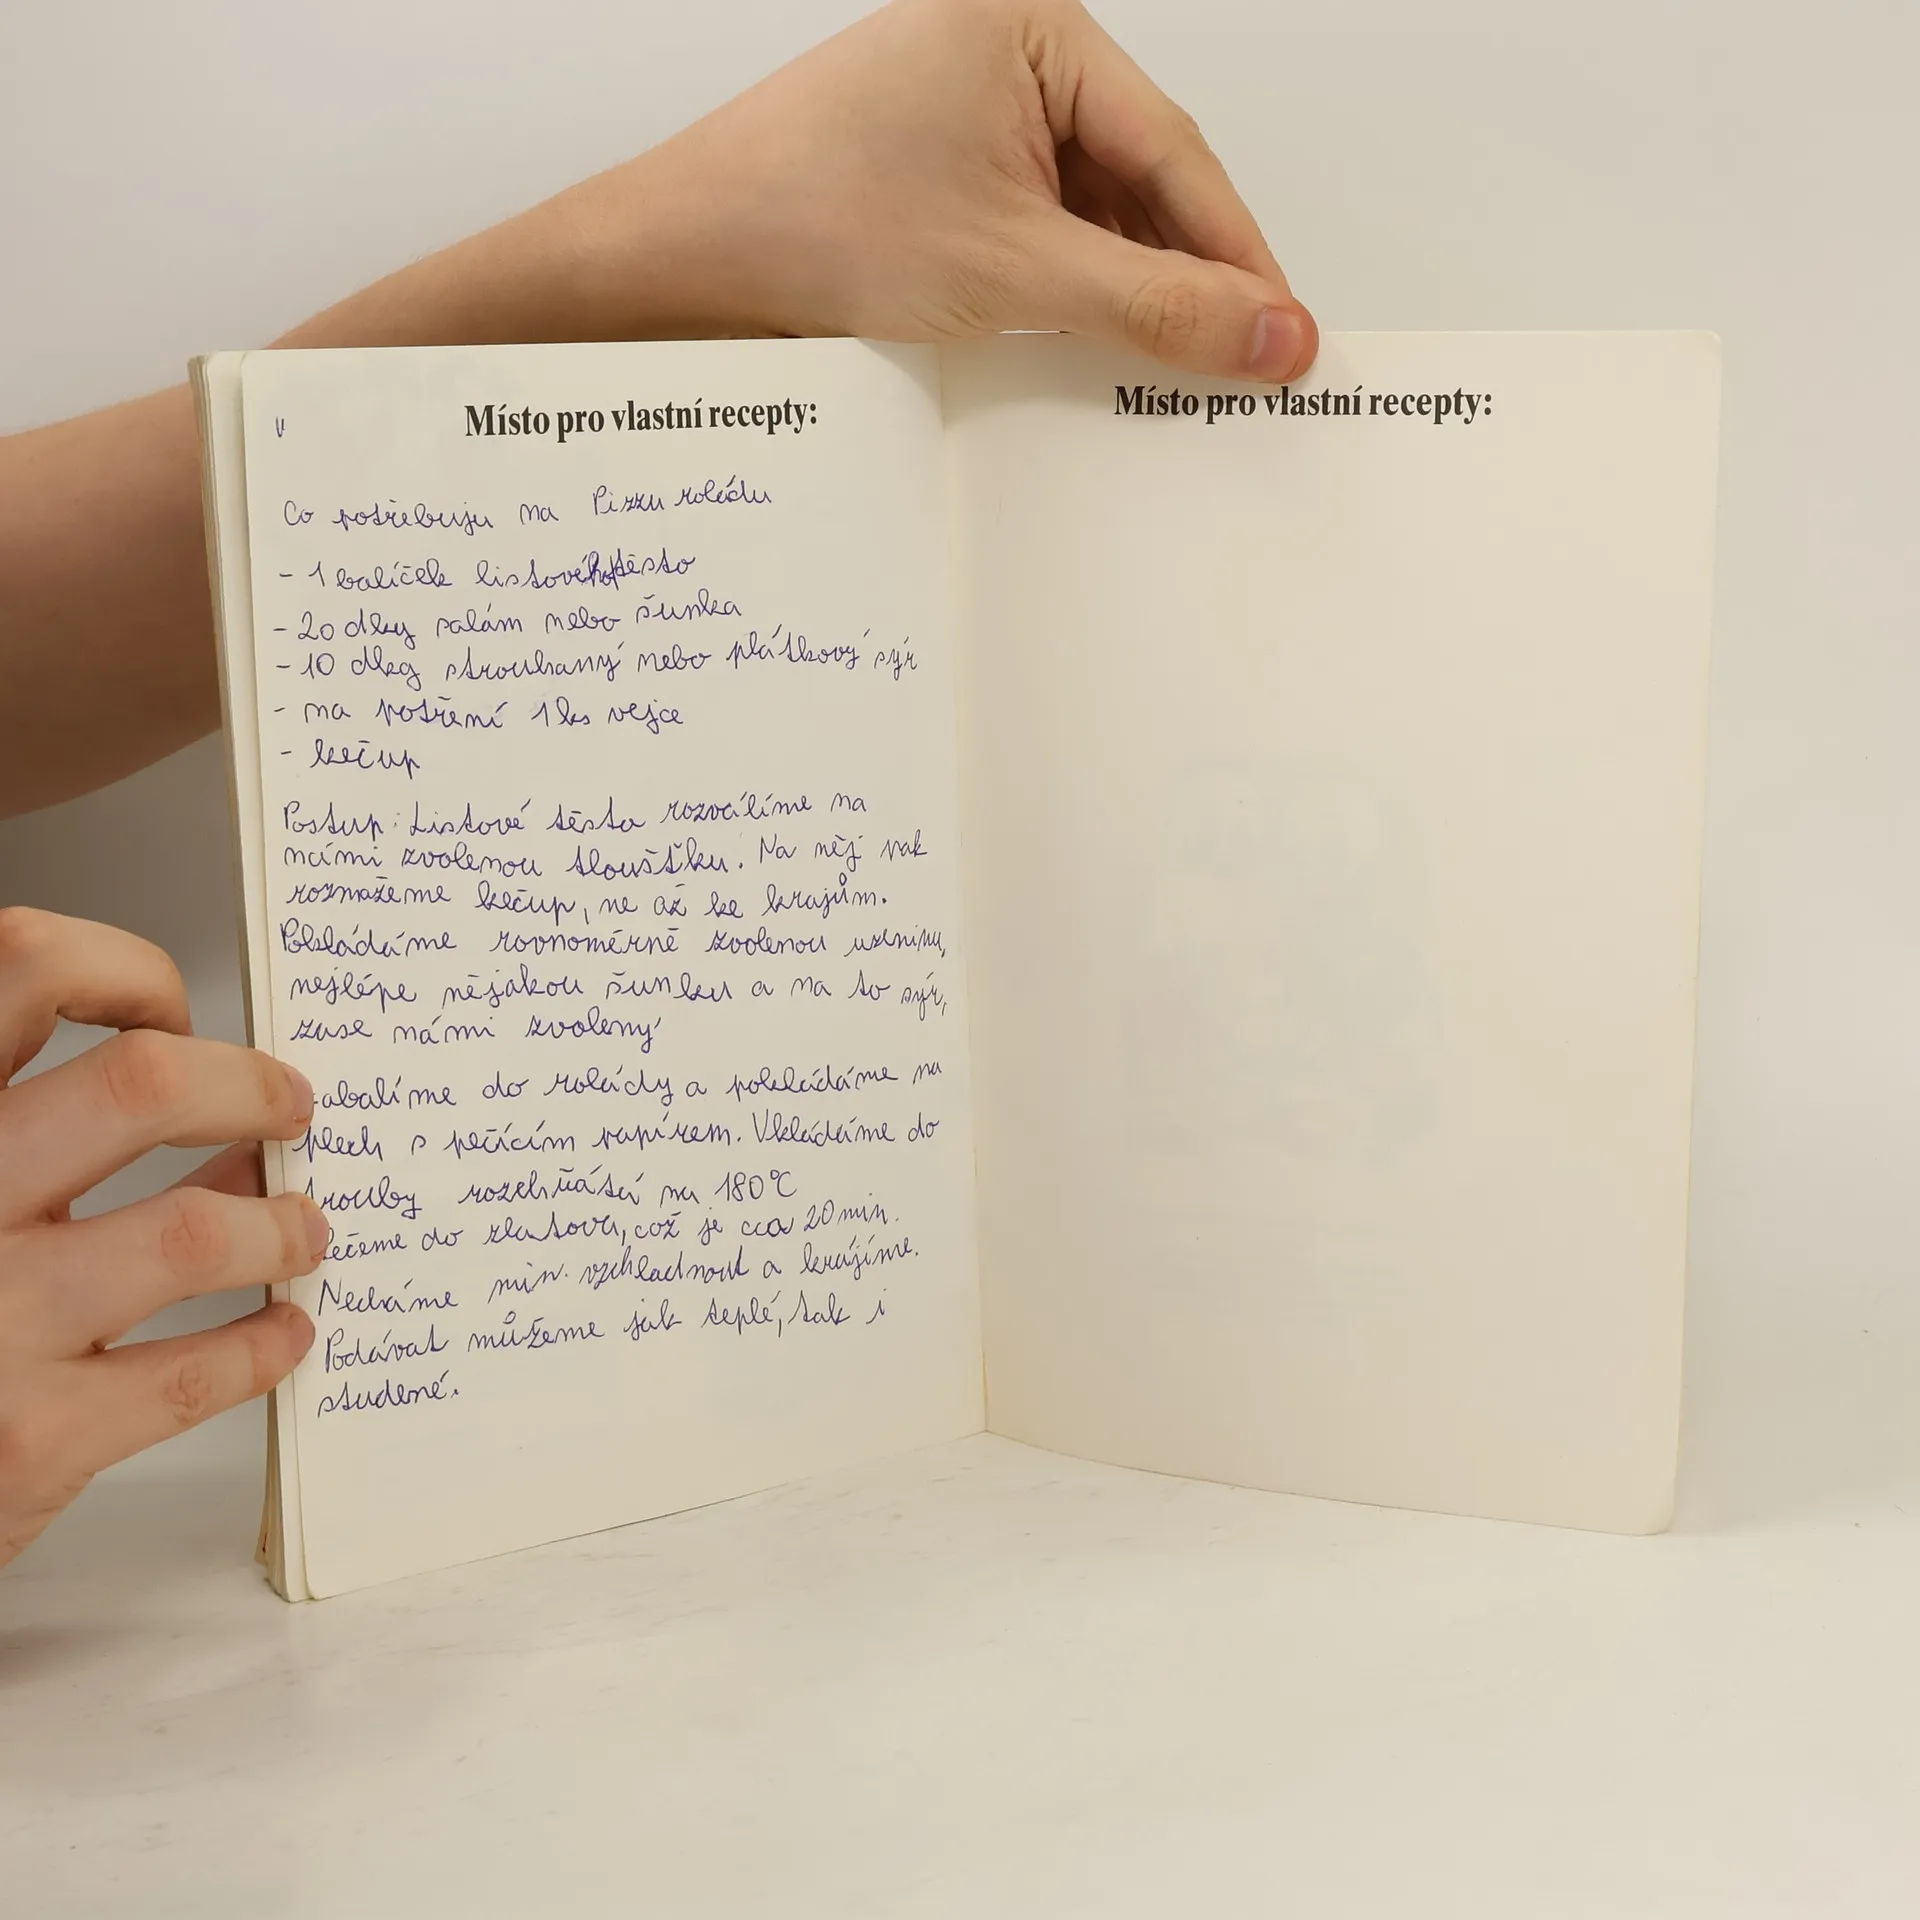 Místo pro vlastní recepty:
Co potřebuju na Pizzu roládu
- 1 balíček listového těsto
- 20 dkg salám nebo šunka
- 10 dkg strouhaný nebo plátkový sýr
- na potření 1 ks vejce
- kečup
Postup: Listové těsto rozválíme na
námi zvolenou tloušťku. Na něj pak
rozmažeme kečup, ne až ke krajům.
Pokládáme rovnoměrně zvolenou uzeninu,
nejlépe nějakou šunku a na to sýr,
zase námi zvolený
abalíme do rolády a pokládáme na
plech s pečícím papírem. Vkládáme do
trouby rozehřátá na 180°C
ečeme do zlatova, což je cca 20 min.
Necháme min. vzchladnout a krájíme.
Podávat můžeme jak teplé, tak i
studené.
Místo pro vlastní recepty: